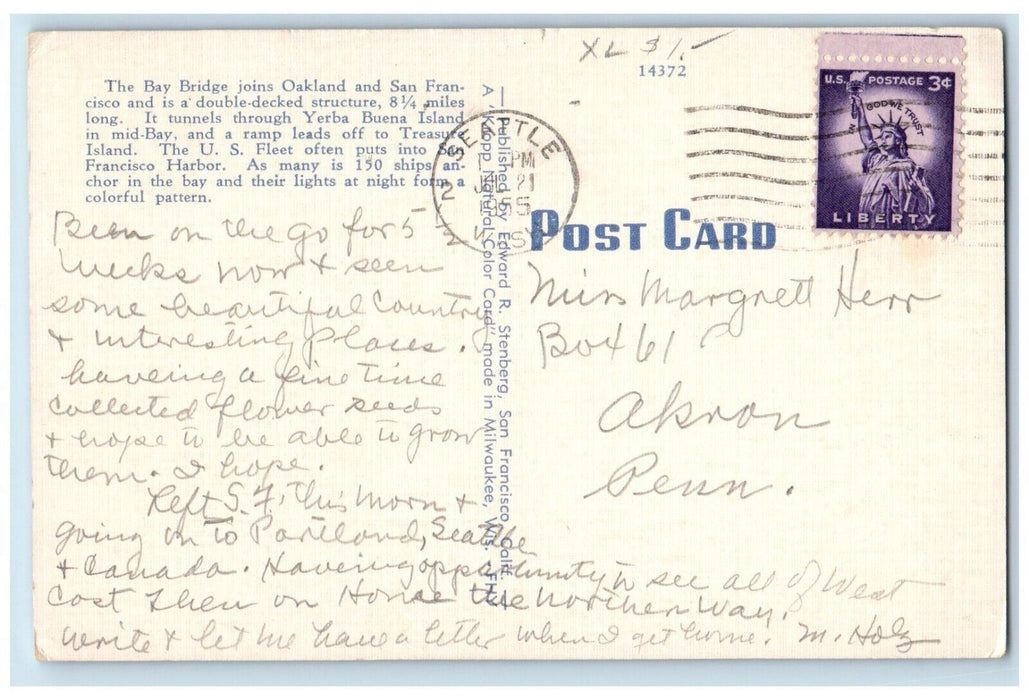 XL $1.-
14372
The Bay Bridge joins Oakland and San Fran-
cisco and is a double-decked structure, 8¼ miles
long. It tunnels through Yerba Buena Island
in mid-Bay, and a ramp leads off to Treasure
Island. The U. S. Fleet often puts into San
Francisco Harbor. As many is 150 ships an-
chor in the bay and their lights at night form a
colorful pattern.
Been on the go for 5
weeks now & seen
some beautiful Country
& interesting places.
haveing a fine time
collected flower seeds
& hope to be able to grow
them. I hope.
Left S.F. this morn &
going on to Portland, Seattle
& Canada. Haveing opportunity to see all of West
Cost then on Home the northern way.
write & let me have a letter when I get home. M. Holz
— Published by Edward R. Stenberg, San Francisco, Calif. —
A "Kropp Natural Color Card" made in Milwaukee, Wis.
SEATTLE
PM
21
POST CARD
U.S. POSTAGE 3¢
IN GOD WE TRUST
LIBERTY
Miss Margrett Herr
Box 61
Akron
Penn.